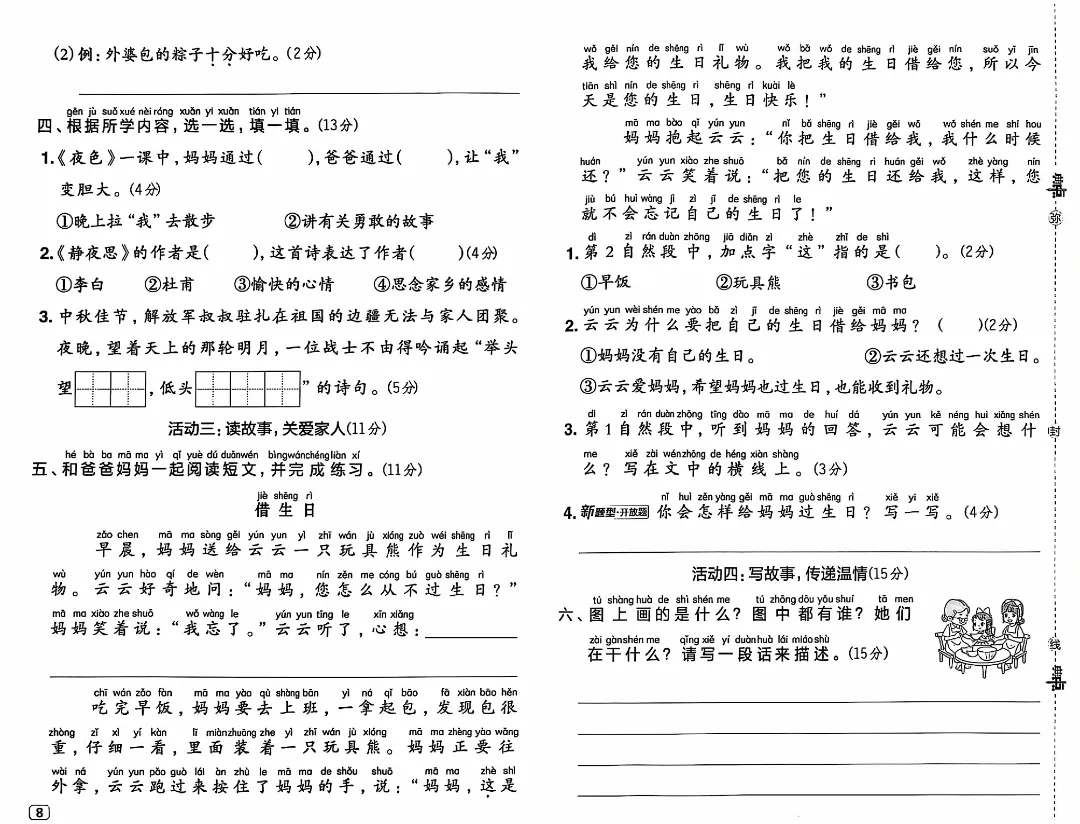 (2)例：外婆包的粽子十分好吃。(2分)
gēn jù suǒ xué nèi róng xuǎn yi xuǎn tián yi tián
四、根据所学内容，选一选，填一填。(13分)
1.《夜色》一课中，妈妈通过(　　)，爸爸通过(　　)，让“我”
变胆大。(4分)
①晚上拉“我”去散步　②讲有关勇敢的故事
2.《静夜思》的作者是(　　)，这首诗表达了作者(　　)(4分)
①李白　②杜甫　③愉快的心情　④思念家乡的感情
3.中秋佳节，解放军叔叔驻扎在祖国的边疆无法与家人团聚。
夜晚，望着天上的那轮明月，一位战士不由得吟诵起“举头
望　　，低头　　　”的诗句。(5分)
活动三：读故事，关爱家人(11分)
hé bà ba mā ma yì qǐ yuè dú duǎn wén bìng wán chéng liàn xí
五、和爸爸妈妈一起阅读短文，并完成练习。(11分)
jiè shēng rì
借生日
zǎo chen mā ma sòng gěi yún yun yì zhī wán jù xióng zuò wéi shēng rì lǐ
早晨，妈妈送给云云一只玩具熊作为生日礼
wù yún yun hào qí de wèn mā ma nín zěn me cóng bú guò shēng rì
物。云云好奇地问：“妈妈，您怎么从不过生日？”
mā ma xiào zhe shuō wǒ wàng le yún yun tīng le xīn xiǎng
妈妈笑着说：“我忘了。”云云听了，心想：
chī wán zǎo fàn mā ma yào qù shàng bān yì ná qǐ bāo fā xiàn bāo hěn
吃完早饭，妈妈要去上班，一拿起包，发现包很
zhòng zǐ xì yí kàn lǐ miàn zhuāng zhe yì zhī wán jù xióng mā ma zhèng yào wǎng
重，仔细一看，里面装着一只玩具熊。妈妈正要往
wài ná yún yun pǎo guò lái àn zhù le mā ma de shǒu shuō mā ma zhè shì
外拿，云云跑过来按住了妈妈的手，说：“妈妈，这是
8
wǒ gěi nín de shēng rì lǐ wù wǒ bǎ wǒ de shēng rì jiè gěi nín suǒ yǐ jīn
我给您的生日礼物。我把我的生日借给您，所以今
tiān shì nín de shēng rì shēng rì kuài lè
天是您的生日，生日快乐！”
mā ma bào qǐ yún yun nǐ bǎ shēng rì jiè gěi wǒ wǒ shén me shí hou
妈妈抱起云云：“你把生日借给我，我什么时候
huán yún yun xiào zhe shuō bǎ nín de shēng rì huán gěi wǒ zhè yàng nín
还？”云云笑着说：“把您的生日还给我，这样，您
jiù bú huì wàng jì zì jǐ de shēng rì le
就不会忘记自己的生日了！”
dì zì rán duàn zhōng jiā diǎn zì zhè zhǐ de shì
1.第2自然段中，加点字“这”指的是(　　)。(2分)
①早饭　②玩具熊　③书包
yún yun wèi shén me yào bǎ zì jǐ de shēng rì jiè gěi mā ma
2.云云为什么要把自己的生日借给妈妈？(　　)(2分)
①妈妈没有自己的生日。　②云云还想过一次生日。
③云云爱妈妈，希望妈妈也过生日，也能收到礼物。
dì zì rán duàn zhōng tīng dào mā ma de huí dá yún yun kě néng huì xiǎng shén
3.第1自然段中，听到妈妈的回答，云云可能会想什
me xiě zài wén zhōng de héng xiàn shàng
么？写在文中的横线上。(3分)
nǐ huì zěn yàng gěi mā ma guò shēng rì xiě yi xiě
4.新题型·开放题 你会怎样给妈妈过生日？写一写。(4分)
活动四：写故事，传递温情(15分)
tú shàng huà de shì shén me tú zhōng dōu yǒu shuí tā men
六、图上画的是什么？图中都有谁？她们
zài gàn shén me qǐng xiě yí duàn huà lái miáo shù
在干什么？请写一段话来描述。(15分)
弥
封
线